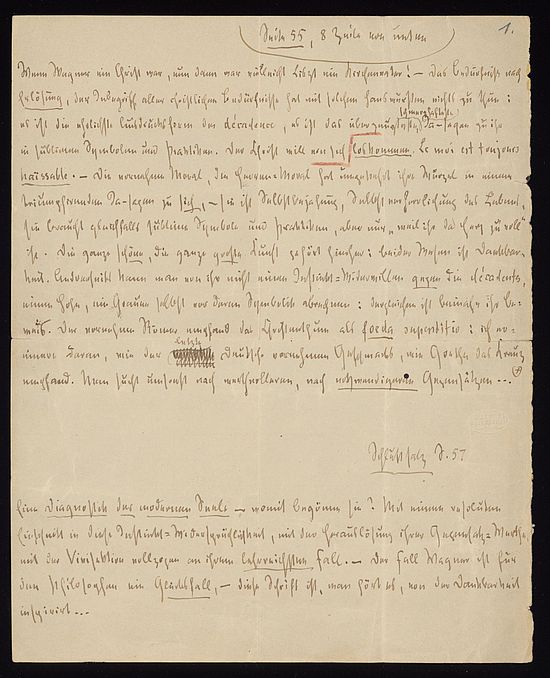 Seite 55, 8 Zeile von unten
1.
Wenn Wagner ein Christ war, nun dann war vielleicht Liszt ein Kirchenvater! – Das Bedürfniß nach
Erlösung, der Inbegriff aller christlichen Bedürfnisse hat mit solchen Hanswürsten nichts zu thun:
es ist die ehrlichste Ausdrucksform der décadence, es ist das überzeugteste, schmerzhafteste Ja-sagen zu ihr
in sublimen Symbolen und Praktiken. Der Christ will von sich loskommen. Le moi est toujours
haïssable. – Die vornehme Moral, die Herren-Moral hat umgekehrt ihre Wurzel in einem
triumphirenden Ja-sagen zu sich, – sie ist Selbstbejahung, Selbstverherrlichung des Lebens,
sie braucht gleichfalls sublime Symbole und Praktiken, aber nur „weil ihr das Herz zu voll"
ist. Die ganze schöne, die ganze große Kunst gehört hierher: beider Wesen ist Dankbar-
keit. Andrerseits kann man von ihr nicht einen Instinkt-Widerwillen gegen die décadents,
einen Hohn, ein Grauen selbst vor deren Symbolik abrechnen: dergleichen ist beinahe ihr Be-
weis. Der vornehme Römer empfand das Christenthum als foeda superstitio: ich er-
innere daran, wie der letzte Deutsche vornehmen Geschmacks, wie Goethe das Kreuz
empfand. Man sucht umsonst nach werthvolleren, nach nothwendigeren Gegensätzen...
Schlußsatz S. 57
Eine Diagnostik der modernen Seele – womit begönne sie? Mit einem resoluten
Einschnitt in diese Instinkt-Widersprüchlichkeit, mit der Herauslösung ihrer Gegensatz-Werthe,
mit der Vivisektion vollzogen an ihrem lehrreichsten Fall. – Der Fall Wagner ist für
den Philosophen ein Glücksfall, – diese Schrift ist, man hört es, von der Dankbarkeit
inspirirt...